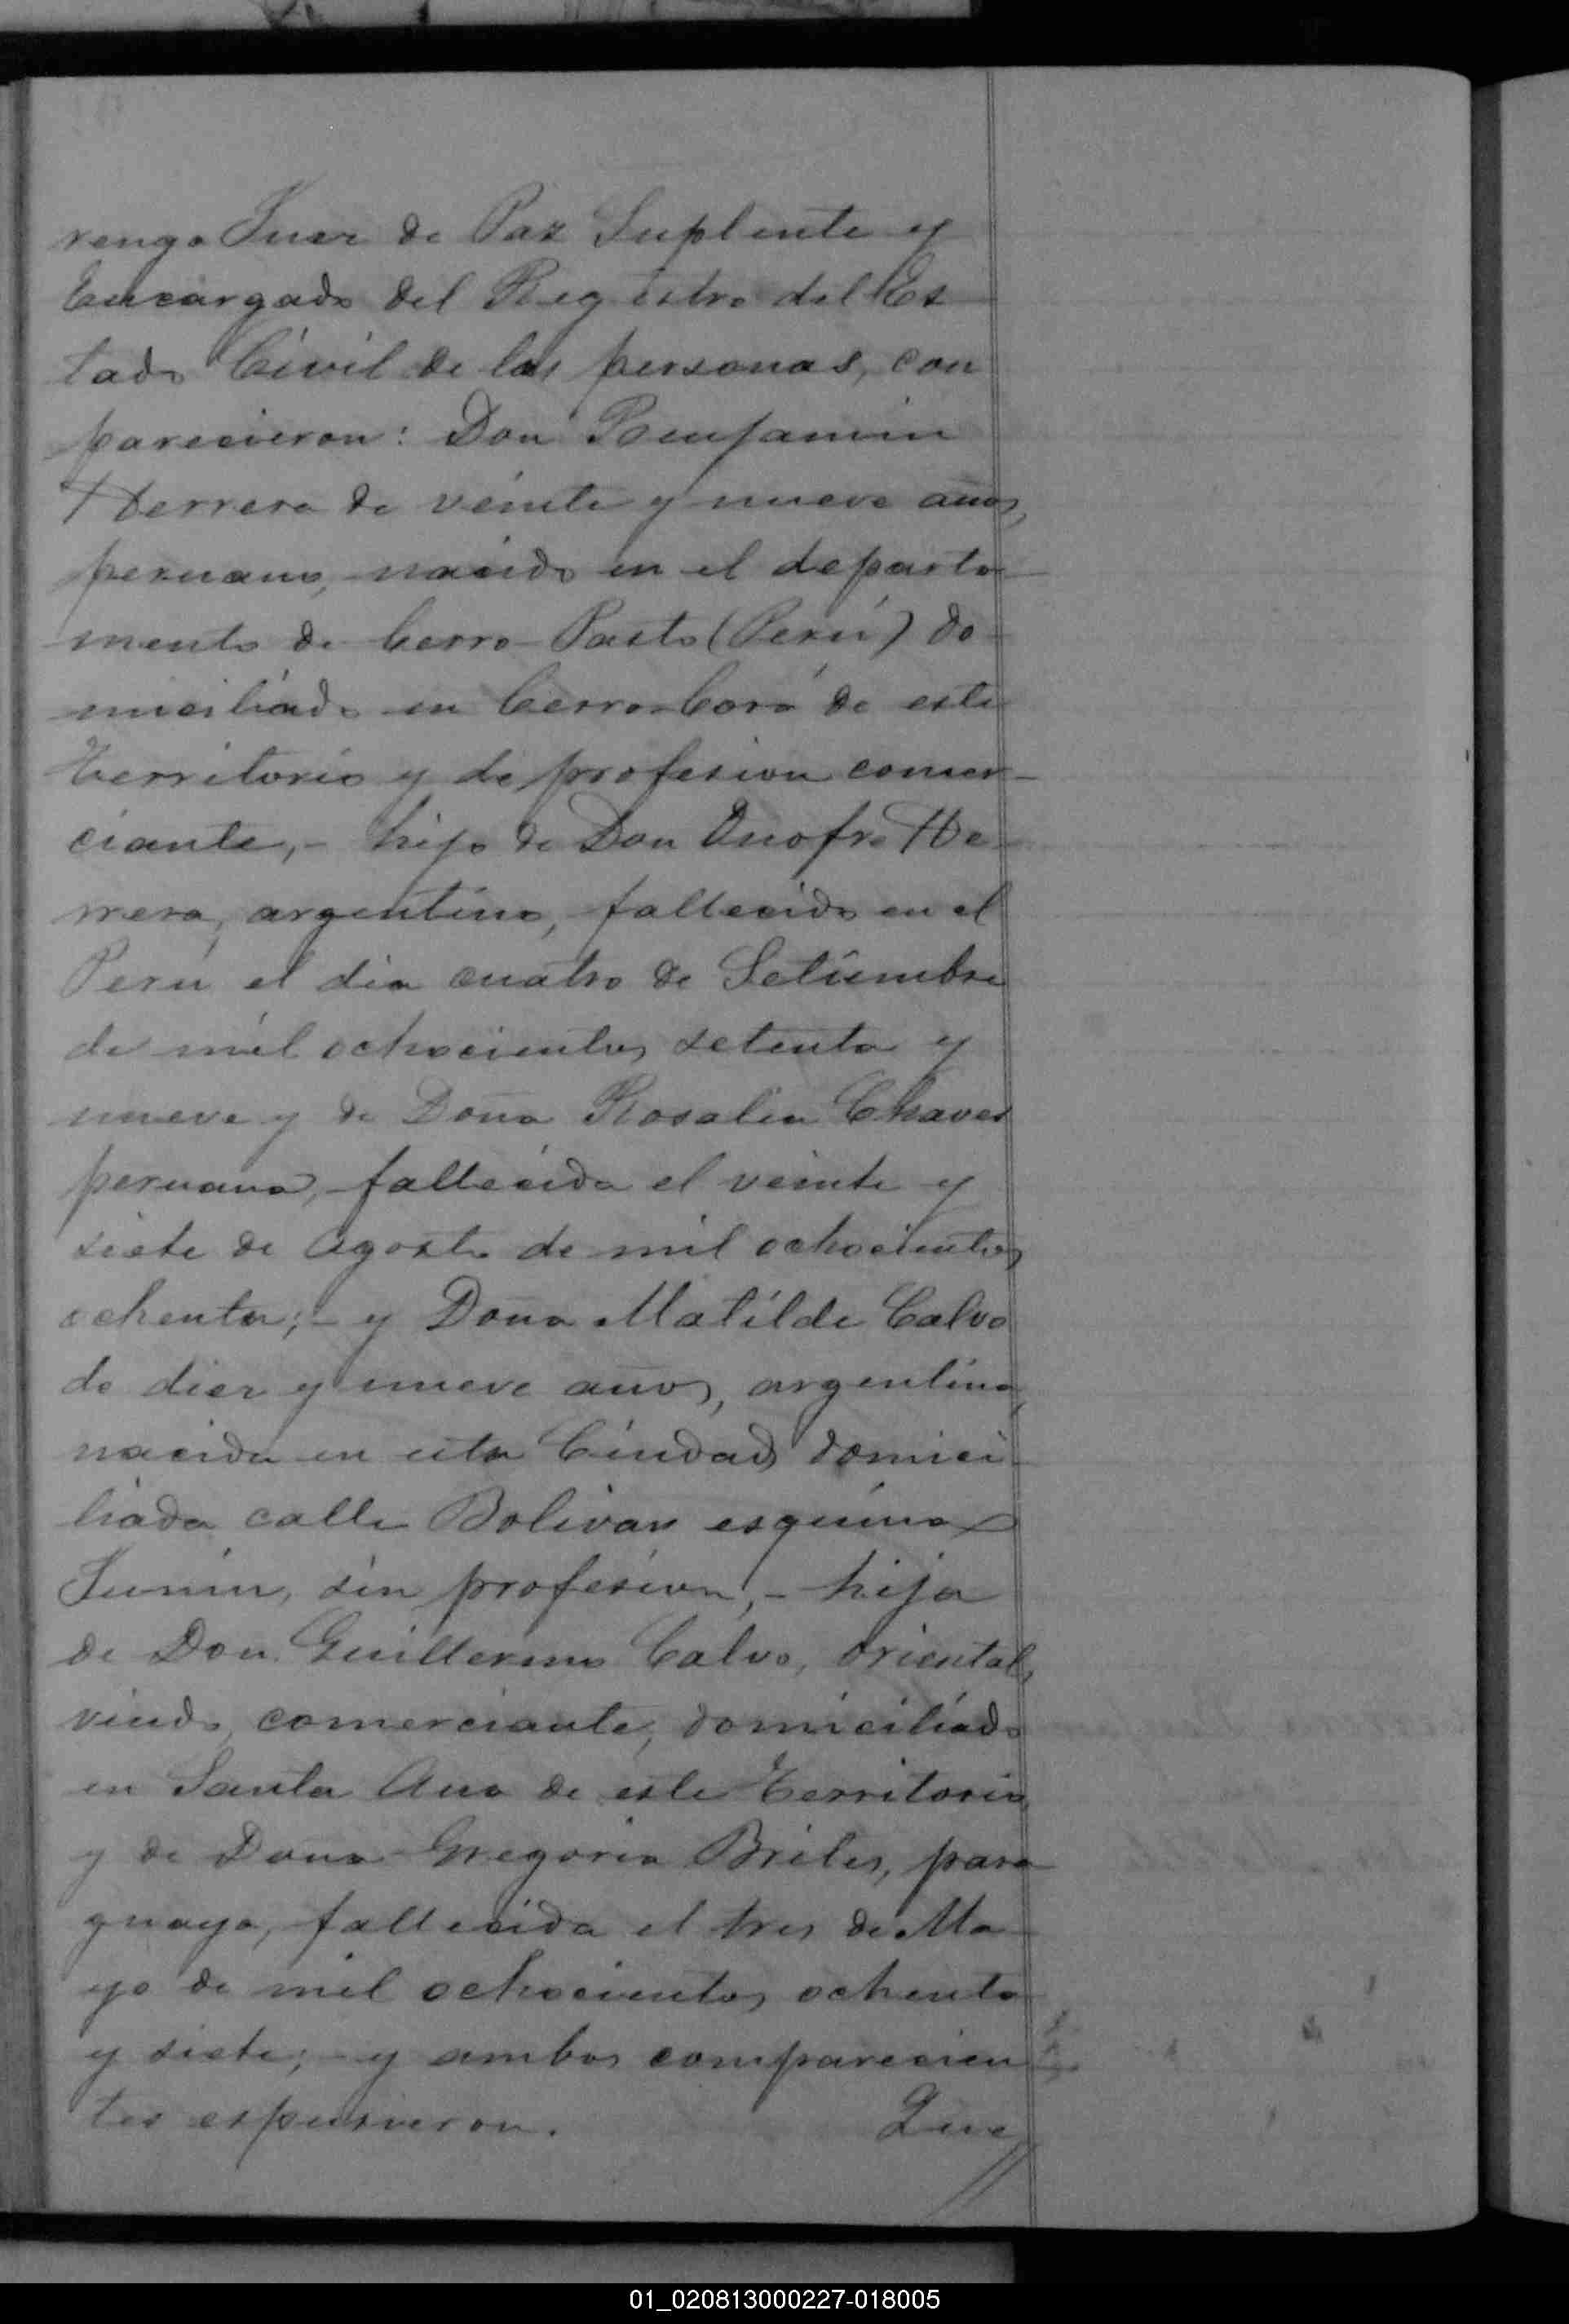 rengo Juez de Paz Suplente y
Encargado del Registro del Es
tado Civil de las personas, con
parecieron: Don Benjamin
Herrera de veinte y nueve años,
peruano, nacido en el departa-
mento de Cerro-Pasto (Perú) do-
miciliado en Cerro-Corá de este
Territorio y de profesion comer-
ciante,- hijo de Don Onofre He-
rrera, argentino, fallecido en el
Perú el dia cuatro de Setiembre
de mil ochocientos setenta y
nueve y de Doña Rosalia Chaves
peruana, fallecida el veinte y
siete de Agosto de mil ochocientos
ochenta;- y Doña Matilde Calvo
de diez y nueve años, argentina,
nacida en esta Ciudad, domici-
liada calle Bolivar esquina
Junin, sin profesion,- hija
de Don Guillermo Calvo, oriental,
viudo, comerciante, domiciliado
en Santa Ana de este Territorio,
y de Doña Gregoria Briles, para-
guaya, fallecida el tres de Ma-
yo de mil ochocientos ochenta
y siete;- y ambos comparecien
tes espusieron. Que
01_020813000227-018005